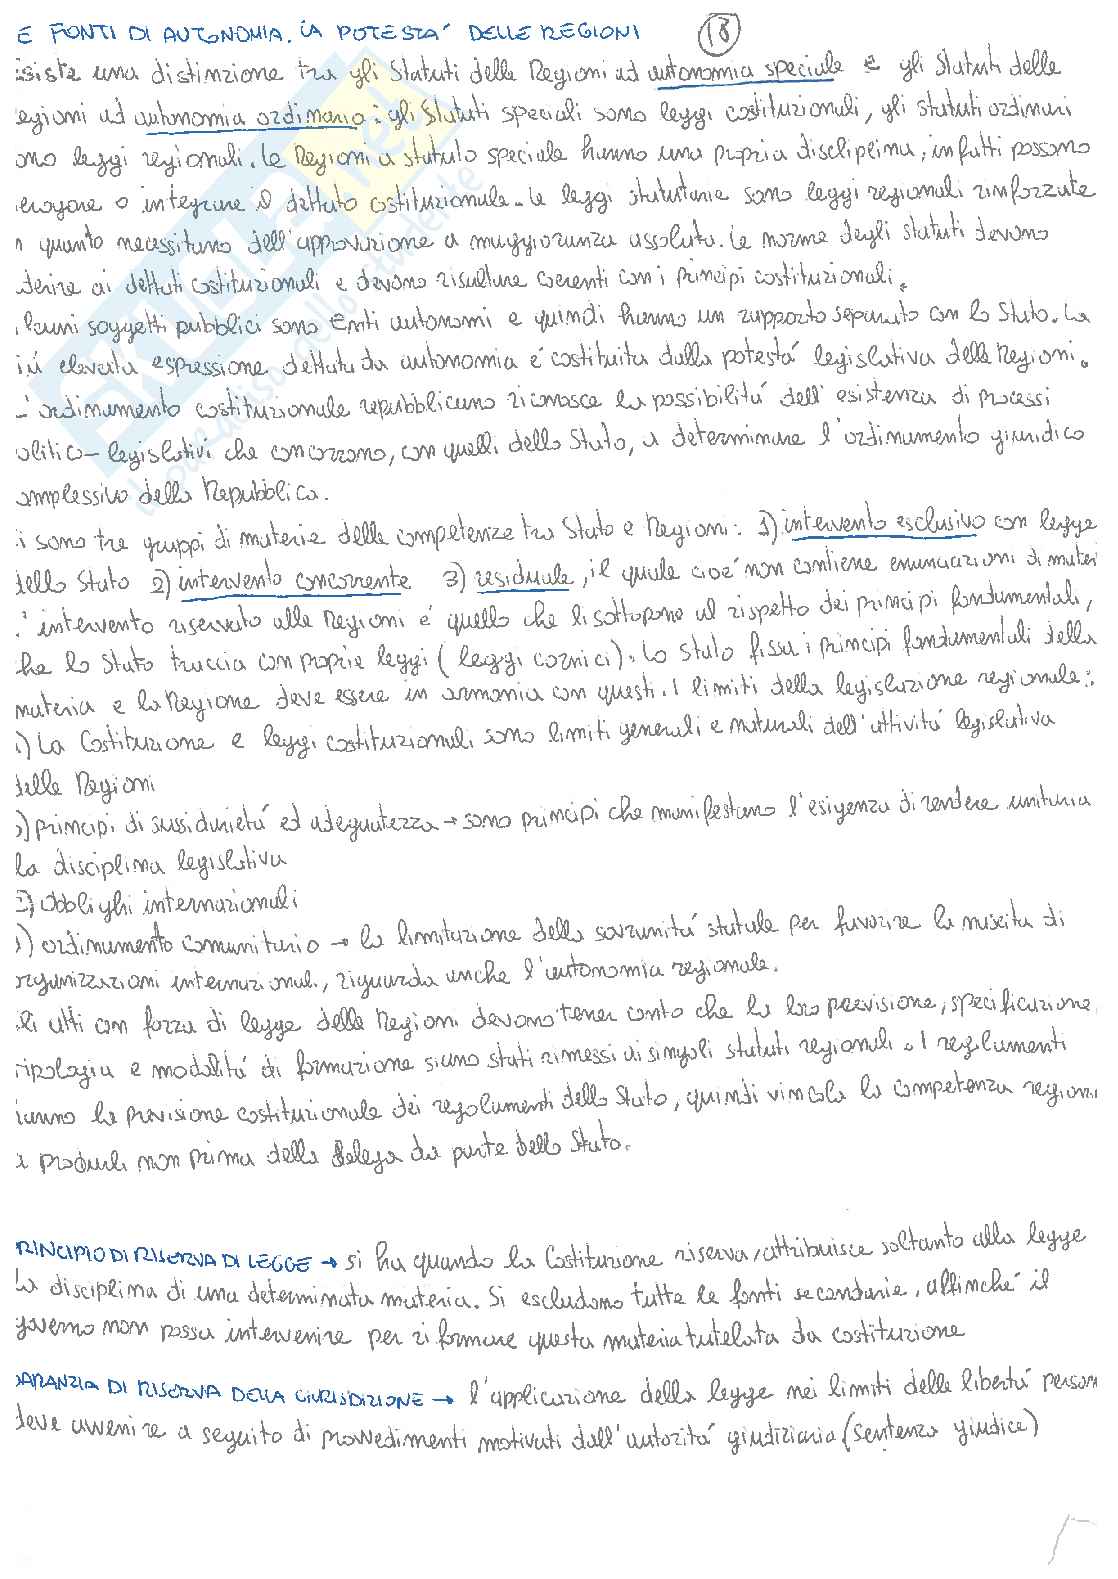 E FONTI DI AUTONOMIA. LA POTESTA' DELLE REGIONI 18
esiste una distinzione tra gli Statuti delle Regioni ad autonomia speciale e gli Statuti delle
egioni ad autonomia ordinaria: gli Statuti speciali sono leggi costituzionali, gli statuti ordinari
ono leggi regionali. Le Regioni a statuto speciale hanno una propria disciplina, infatti possono
erogare o integrare il dettato costituzionale. Le leggi statutarie sono leggi regionali rinforzate
n quanto necessitano dell'approvazione a maggioranza assoluta. Le norme degli statuti devono
derire ai dettati costituzionali e devono risultare coerenti con i principi costituzionali.
lcuni soggetti pubblici sono Enti autonomi e quindi hanno un rapporto separato con lo Stato. La
iú elevata espressione dettata da autonomia é costituita dalla potestá legislativa delle Regioni.
L'ordinamento costituzionale repubblicano riconosce la possibilitá dell'esistenza di processi
olitico-legislativi che concorrono, con quelli dello Stato, a determinare l'ordinamento giuridico
omplessivo della Repubblica.
i sono tre gruppi di materie delle competenze tra Stato e Regioni: 1) intervento esclusivo con legge
dello Stato 2) intervento concorrente 3) residuale, il quale cioé non contiene enunciazioni di mater
L'intervento riservato alle Regioni é quello che li sottopone al rispetto dei principi fondamentali,
he lo Stato traccia con proprie leggi (leggi cornici). Lo Stato fissa i principi fondamentali della
materia e la Regione deve essere in armonia con questi. I limiti della legislazione regionale:
1) La Costituzione e leggi costituzionali sono limiti generali e naturali dell'attivitá legislativa
delle Regioni
2) principi di sussidiarietá ed adeguatezza → sono principi che manifestano l'esigenza di rendere unitaria
la disciplina legislativa
3) Obblighi internazionali
4) ordinamento comunitario → la limitazione della sovranitá statale per favorire la nascita di
rganizzazioni internazional., riguarda anche l'autonomia regionale.
li atti con forza di legge delle Regioni devono tener conto che la loro previsione, specificazione,
tipologia e modalitá di formazione siano stati rimessi ai singoli statuti regionali. I regolamenti
anno la previsione costituzionale dei regolamenti dello Stato, quindi vincola la competenza region
a produrli non prima della delega da parte dello Stato.
PRINCIPIO DI RISERVA DI LEGGE → si ha quando la Costituzione riserva/attribuisce soltanto alla legge
la disciplina di una determinata materia. Si escludono tutte le fonti secondarie, affinché il
governo non possa intervenire per riformare questa materia tutelata da costituzione
GARANZIA DI RISERVA DELLA GIURISDIZIONE → l'applicazione della legge nei limiti delle libertá person
deve avvenire a seguito di provvedimenti motivati dall'autoritá giudiziaria (sentenza giudice)